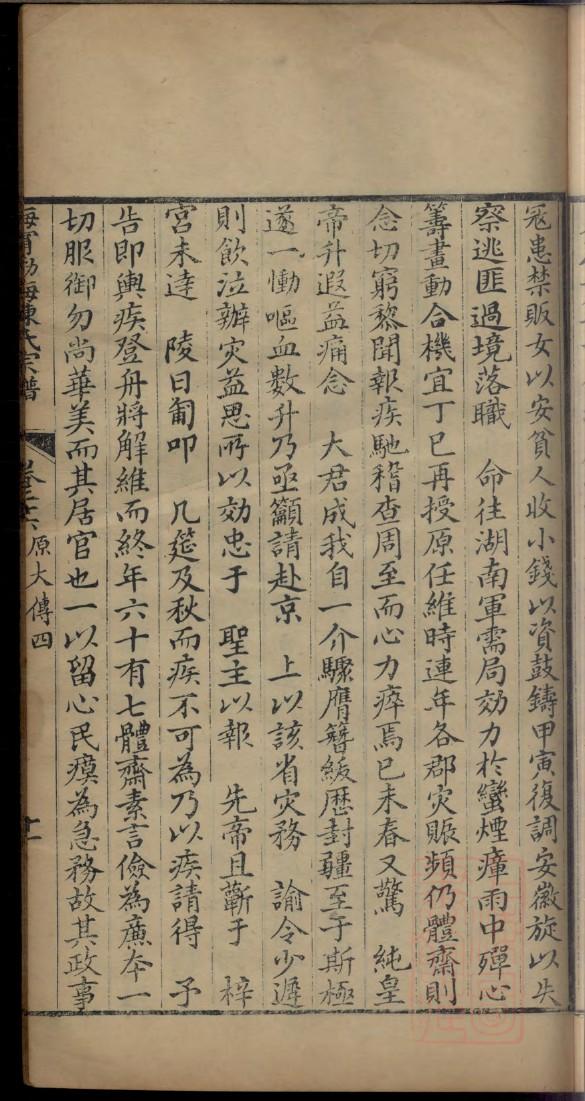 冦患禁販女以安貧人收小錢以資鼓鑄甲寅復調安徽旋以失
察逃匪過境落職　命往湖南軍需局効力於蠻煙瘴雨中殫心
籌畫動合機宜丁巳再授原任維時連年各郡灾賑頻仍體齋則
念切窮黎聞報疾馳稽查周至而心力瘁焉巳未春又驚　純皇
帝升遐益痛念　大君成我自一介驟膺簪紱歷封疆至于斯極
遂一慟嘔血數升乃亟籲請赴京　上以該省灾務　諭令少遲
則飲泣辦灾益思所以効忠于　聖主以報　先帝且蘄于　梓
宮未逹　陵日匍叩　几筵及秋而疾不可為乃以疾請得　予
告即輿疾登舟將解維而終年六十有七體齋素言儉為廉夲一
切服御勿尚華美而其居官也一以留心民瘼為急務故其政事
海寧渤海陳氏宗譜　卷二十六原大傳四　十一